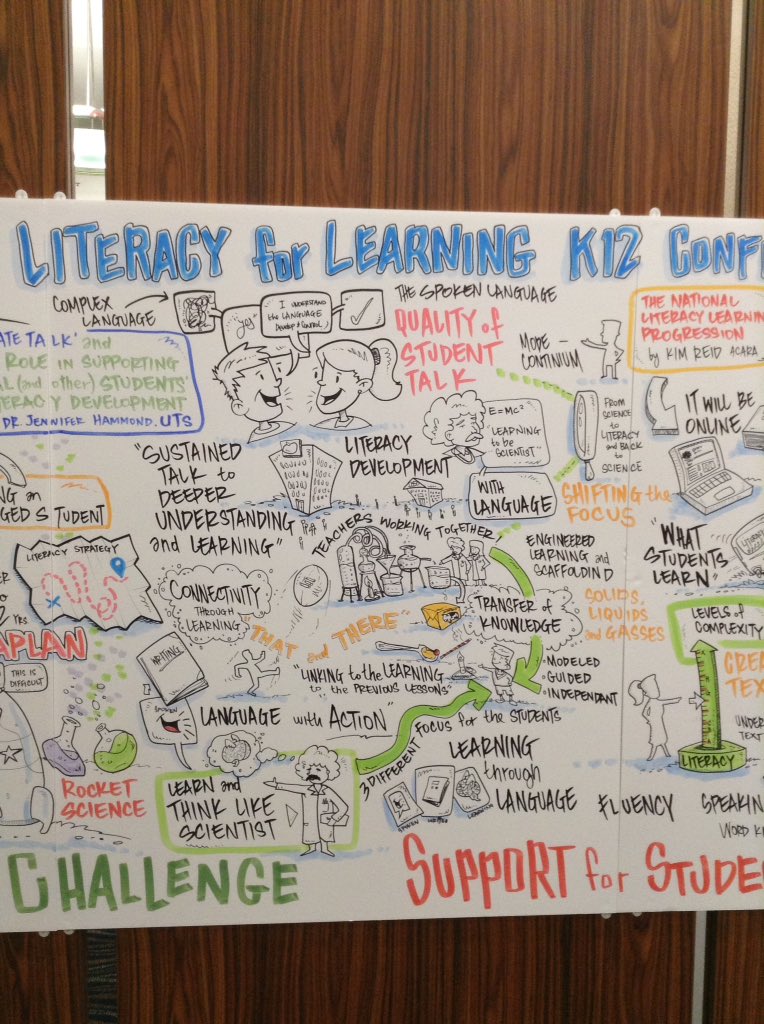 LITERACY for LEARNING K12 CONF
COMPLEX
LANGUAGE
"yes"
I UNDERSTAND
the LANGUAGE
Develop & Control
ATE TALK' and
ROLE IN SUPPORTING
AL (and other) STUDENTS'
TERACY DEVELOPMENT
DR. JENNIFER HAMMOND. UTS
THE SPOKEN LANGUAGE
QUALITY of
STUDENT
TALK
MODE -
CONTINIUM
THE NATIONAL
LITERACY LEARNIN
PROGRESSION
by KIM REID ACARA
E=MC²
"LEARNING
to be
SCIENTIST"
WITH
LANGUAGE
FROM
SCIENCE
to
LITERACY
and BACK
to
SCIENCE
IT WILL BE
ONLINE
NG an
GED STUDENT
"SUSTAINED
TALK to
DEEPER
UNDERSTANDING
and LEARNING"
LITERACY
DEVELOPMENT
SHIFTING the
FOCUS
TEACHERS WORKING TOGETHER
ENGINEERED
LEARNING and
SCAFFOLDIN D
"WHAT
STUDENTS
LEARN"
LITERACY STRATEGY
YRS
APLAN
THIS IS
DIFFICULT
CONNECTIVITY
THROUGH
LEARNING
"THAT and THERE"
TRANSFER of
KNOWLEDGE
SOLIDS,
LIQUIDS
and GASSES
LEVELS of
COMPLEXITY
"LINKING to the LEARNING
to the PREVIOUS LESSONS"
• MODELED
• GUIDED
• INDEPENDANT
CREA
TEX
UNDER
TEXT
LITERACY
WRITING
SPOKEN
LANGUAGE with ACTION"
3 DIFFERENT FOCUS for the STUDENTS
ROCKET
SCIENCE
LEARN and
THINK LIKE
SCIENTIST
LEARNING
through
LANGUAGE
SPOKEN
WRITTEN
FLUENCY
SPEAKIN
WORD K
CHALLENGE
SUPPORT for STUDE